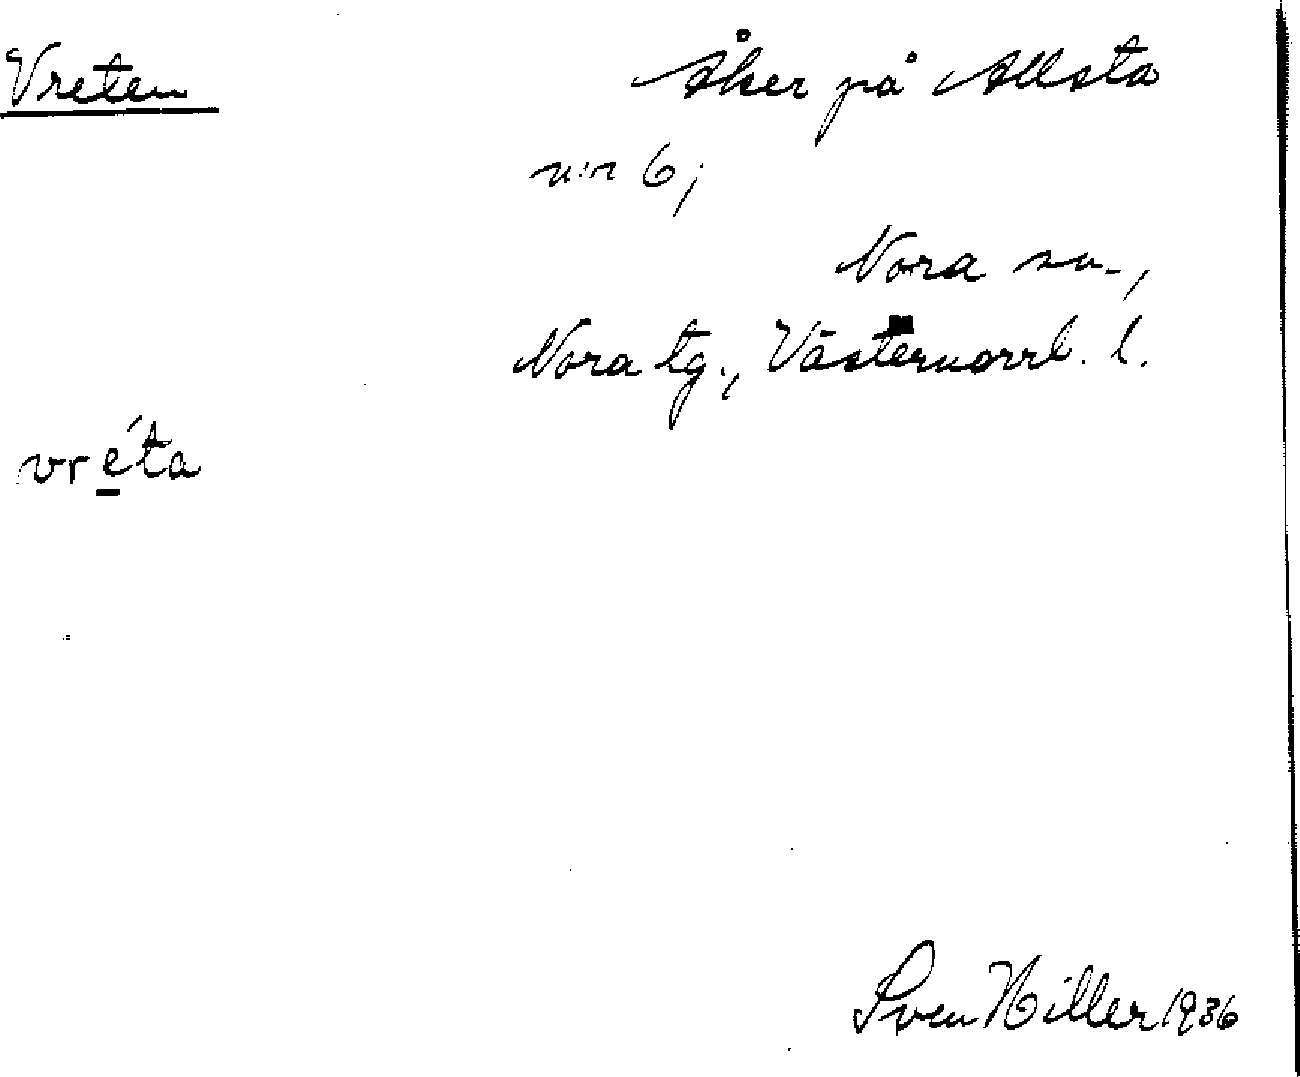 Vreten
Åker på Allsta
n:r 6,
Nora sn.,
Nora tg., Västernorrl. l.
vr_é_ta
Sven Hiller 1936